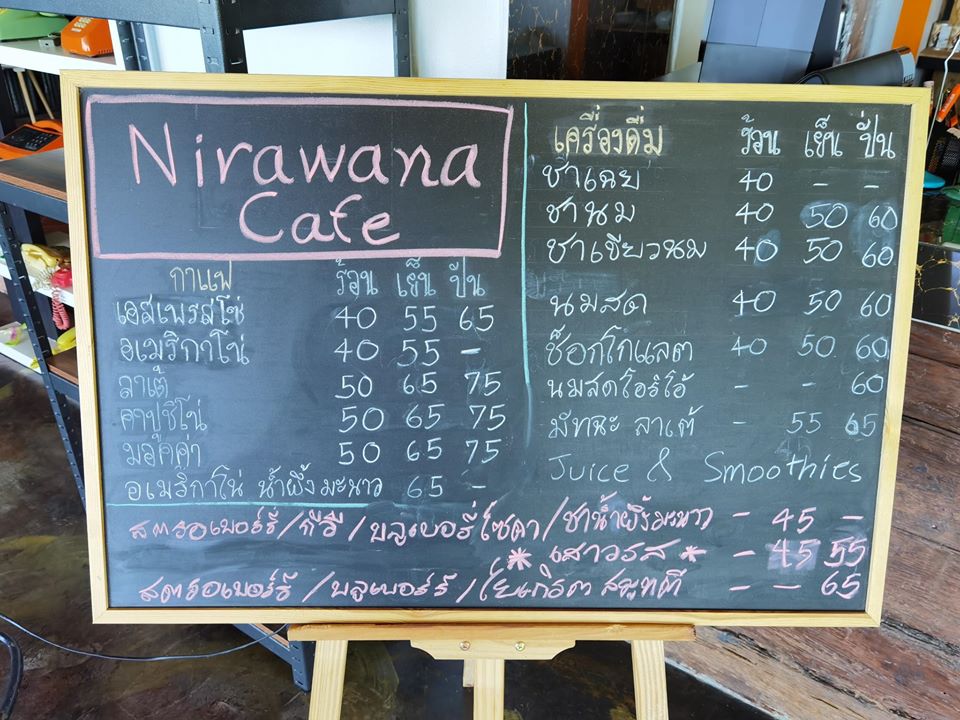 Nirawana
Cafe
กาแฟ ร้อน เย็น ปั่น
เอสเพรสโซ่ 40 55 65
อเมริกาโน่ 40 55 -
ลาเต้ 50 65 75
คาปูชิโน่ 50 65 75
มอคค่า 50 65 75
อเมริกาโน่ น้ำผึ้งมะนาว 65 -
เครื่องดื่ม ร้อน เย็น ปั่น
ชาเฉย 40 - -
ชานม 40 50 60
ชาเขียวนม 40 50 60
นมสด 40 50 60
ช็อกโกแลต 40 50 60
นมสดโอริโอ้ - - 60
มัทฉะ ลาเต้ - 55 65
Juice & Smoothies
สตรอเบอร์รี่/กีวี/บลูเบอรี่โซดา/ชาน้ำผึ้งมะนาว - 45 -
* เสาวรส * - 45 55
สตรอเบอร์รี่/บลูเบอร์รี่/โยเกิร์ต สมูทตี้ - - 65